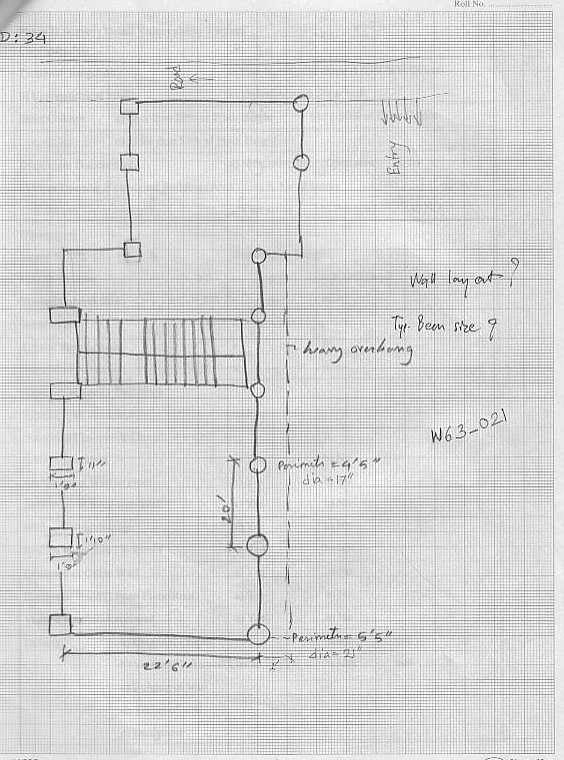 Roll No.
D: 34
Entry
Wall layout ?
Typ. Beem size ?
heavy overhang
W63-021
11"
1'0"
Perimeter = 4'5"
dia = 17"
20'
1'10"
1'0"
Perimeter = 5'5"
dia = 21"
22'6"
2'